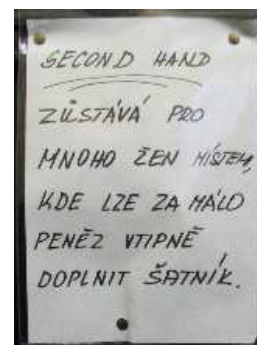 SECOND HAND
ZŮSTÁVÁ PRO
MNOHO ŽEN MÍSTEM,
KDE LZE ZA MÁLO
PENĚZ VTIPNĚ
DOPLNIT ŠATNÍK.